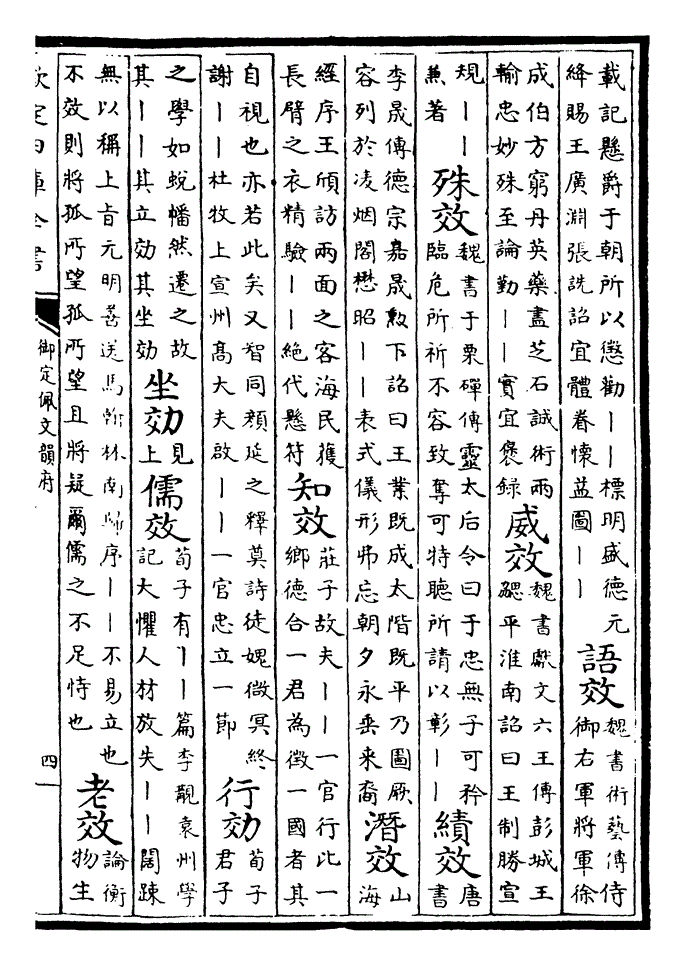 載記懸爵于朝所以懲勸丨丨標明盛德元
絳賜王廣淵張詵詔宜體眷懷益圖丨丨
語效
魏書術藝傳侍
御右軍將軍徐
成伯方窮丹英藥盡芝石誠術兩
輸忠妙殊至論勤丨丨實宜褒録
威效
魏書獻文六王傳彭城王
勰平淮南詔曰王制勝宣
規丨丨
兼著
殊效
魏書于栗磾傳靈太后令曰于忠無子可矜
臨危所祈不容致奪可特聽所請以彰丨丨
績效
唐
書
李晟傳德宗嘉晟勲下詔曰王業既成太階既平乃圖厥
容列於凌烟閣懋昭丨丨表式儀形弗忘朝夕永垂来裔
潛效
山
海
經序王頎訪兩面之客海民獲
長臂之衣精驗丨丨絶代懸符
知效
莊子故夫丨丨一官行比一
鄉德合一君為徵一國者其
自視也亦若此矣又智同顔延之釋奠詩徒媿微冥終
謝丨丨杜牧上宣州髙大夫啟丨丨一官忠立一節
行効
荀子
君子
之學如蛻幡然遷之故
其丨丨其立効其坐効
坐効
見
上
儒效
荀子有丨丨篇李覯袁州學
記大懼人材放失丨丨闊踈
無以稱上旨元明善送馬翰林南歸序丨丨不易立也
不效則將孤所望孤所望且將疑爾儒之不足恃也
老效
論衡
物生
欽定四庫全書
御定佩文韻府
四